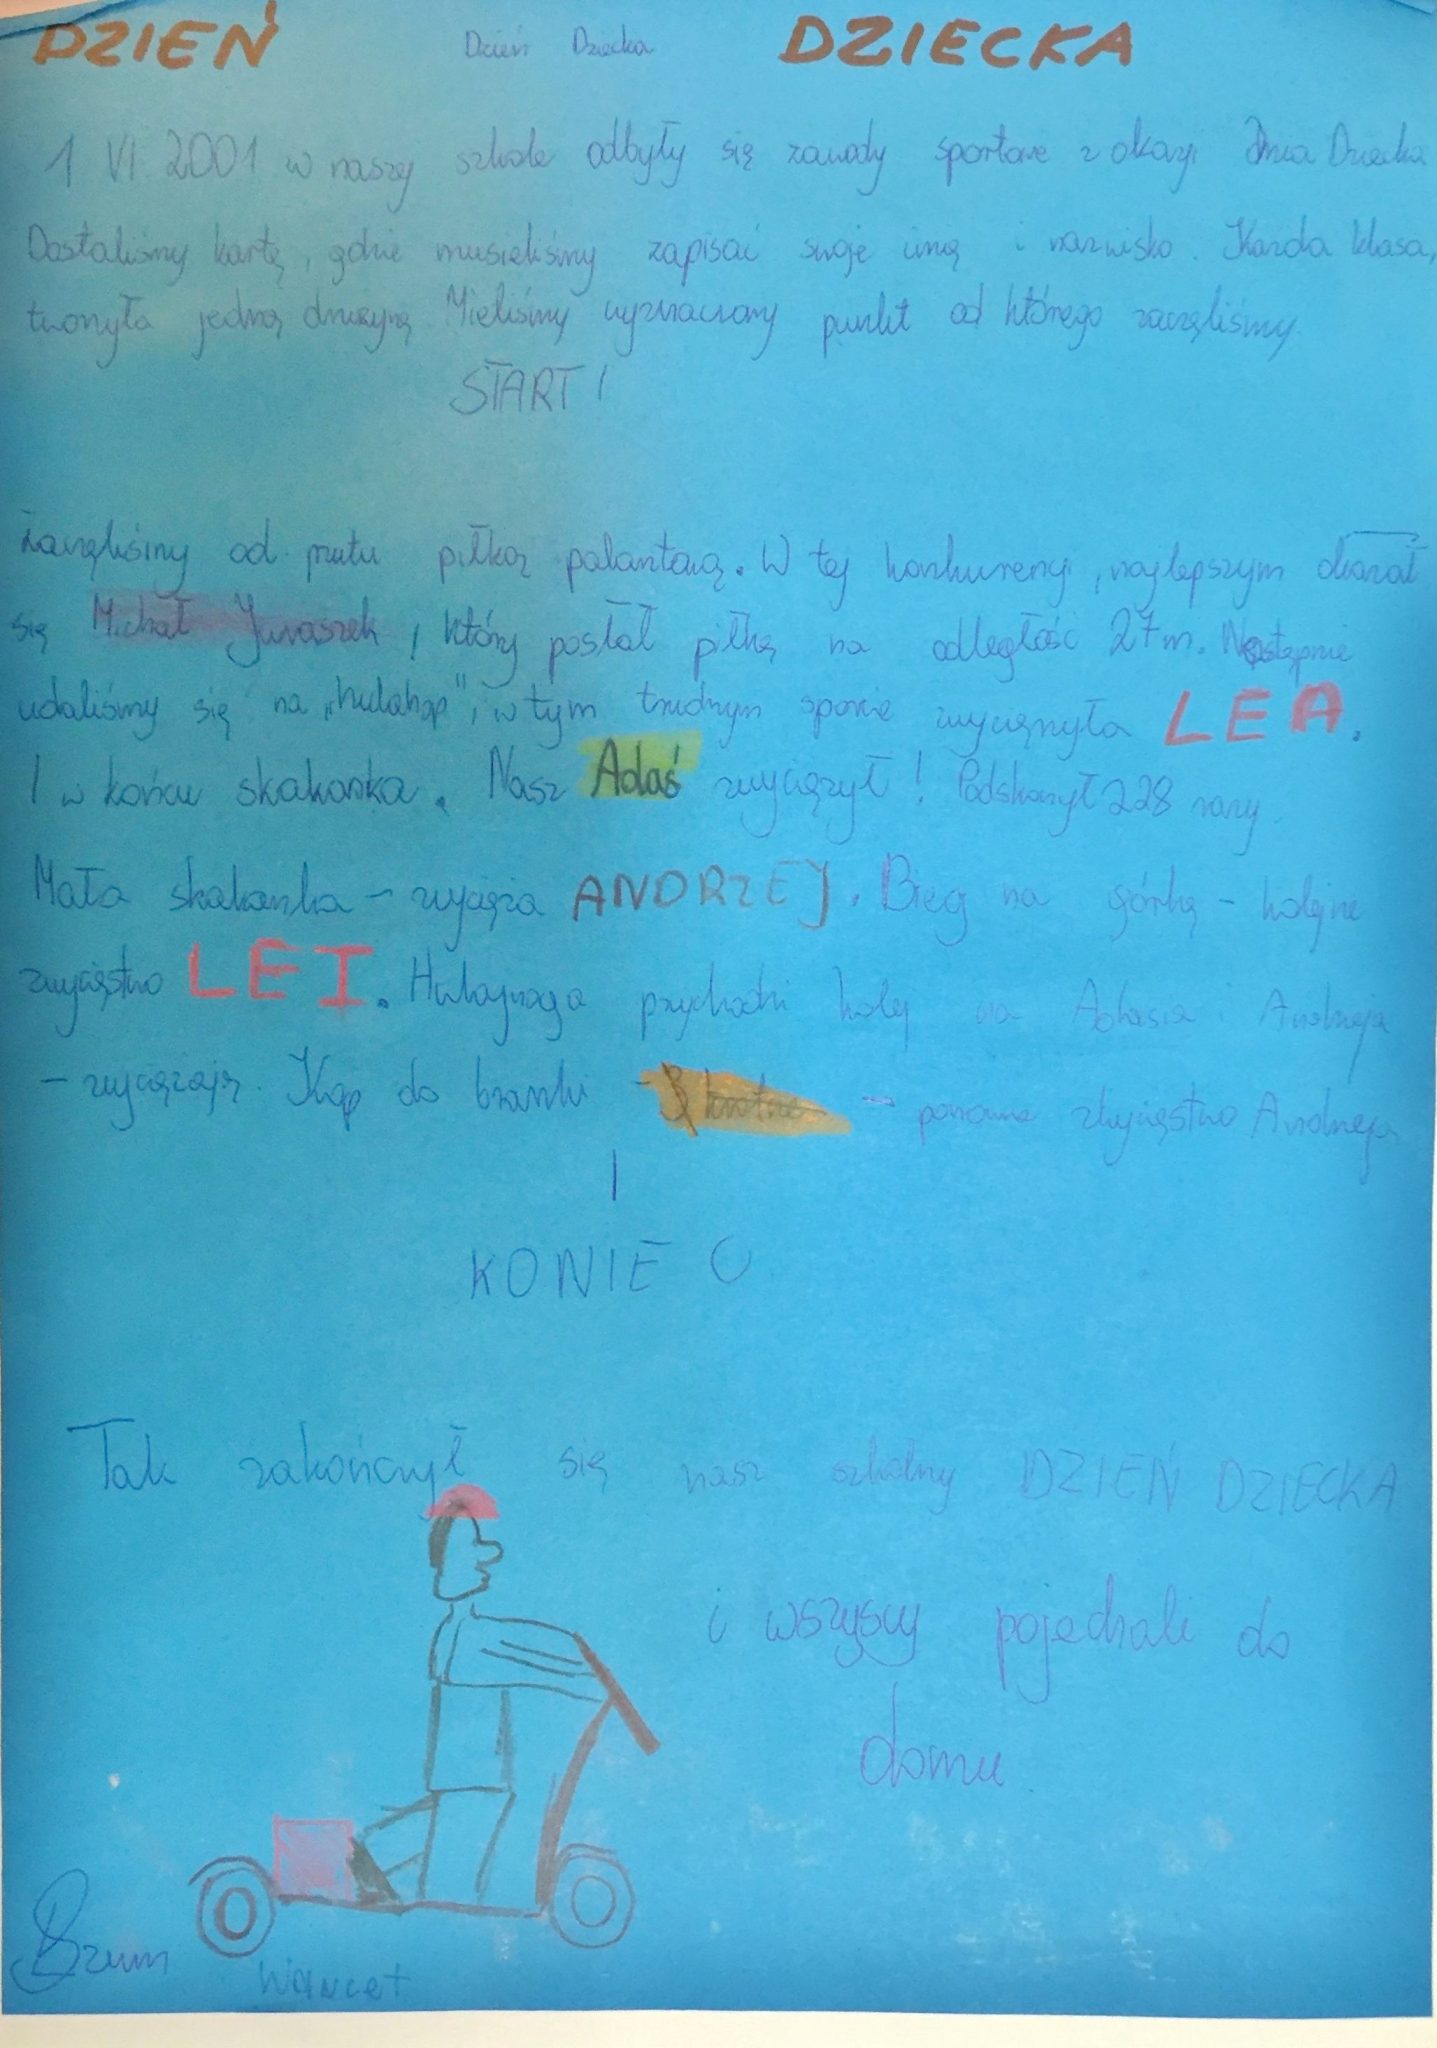 DZIEŃ Dzień Dziecka DZIECKA
1 VI 2001 w naszej szkole odbyły się zawody sportowe z okazji Dnia Dziecka
Dostaliśmy kartę, gdzie musieliśmy zapisać swoje imię i nazwisko. Każda klasa,
tworzyła jedną drużynę. Mieliśmy wyznaczony punkt od którego zaczęliśmy.
START!
Zaczęliśmy od rzutu piłką palantową. W tej konkurencji, najlepszym okazał
się Michał Juraszek, który posłał piłkę na odległość 27m. Następnie
udaliśmy się na „hulahop", w tym trudnym sporcie zwyciężyła LEA.
I w końcu skakanka. Nasz Adaś zwyciężył! Podskoczył 228 razy.
Mała skakanka - zwycięża ANDRZEJ. Bieg na górkę - kolejne
zwycięstwo LEI. Hulajnoga przychodzi kolej na Adasia i Andrzeja
- zwyciężają. Kop do bramki - - ponowne zwycięstwo Andrzeja
I
KONIEC
Tak zakończył się nasz szkolny DZIEŃ DZIECKA
i wszyscy pojechali do
domu.
Brum